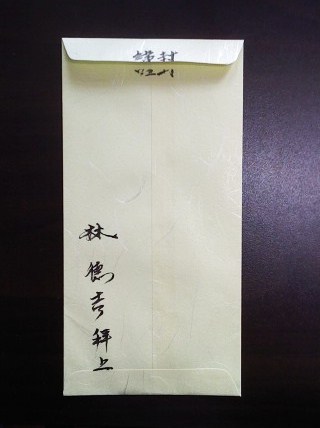 謹封
林德吉拜上